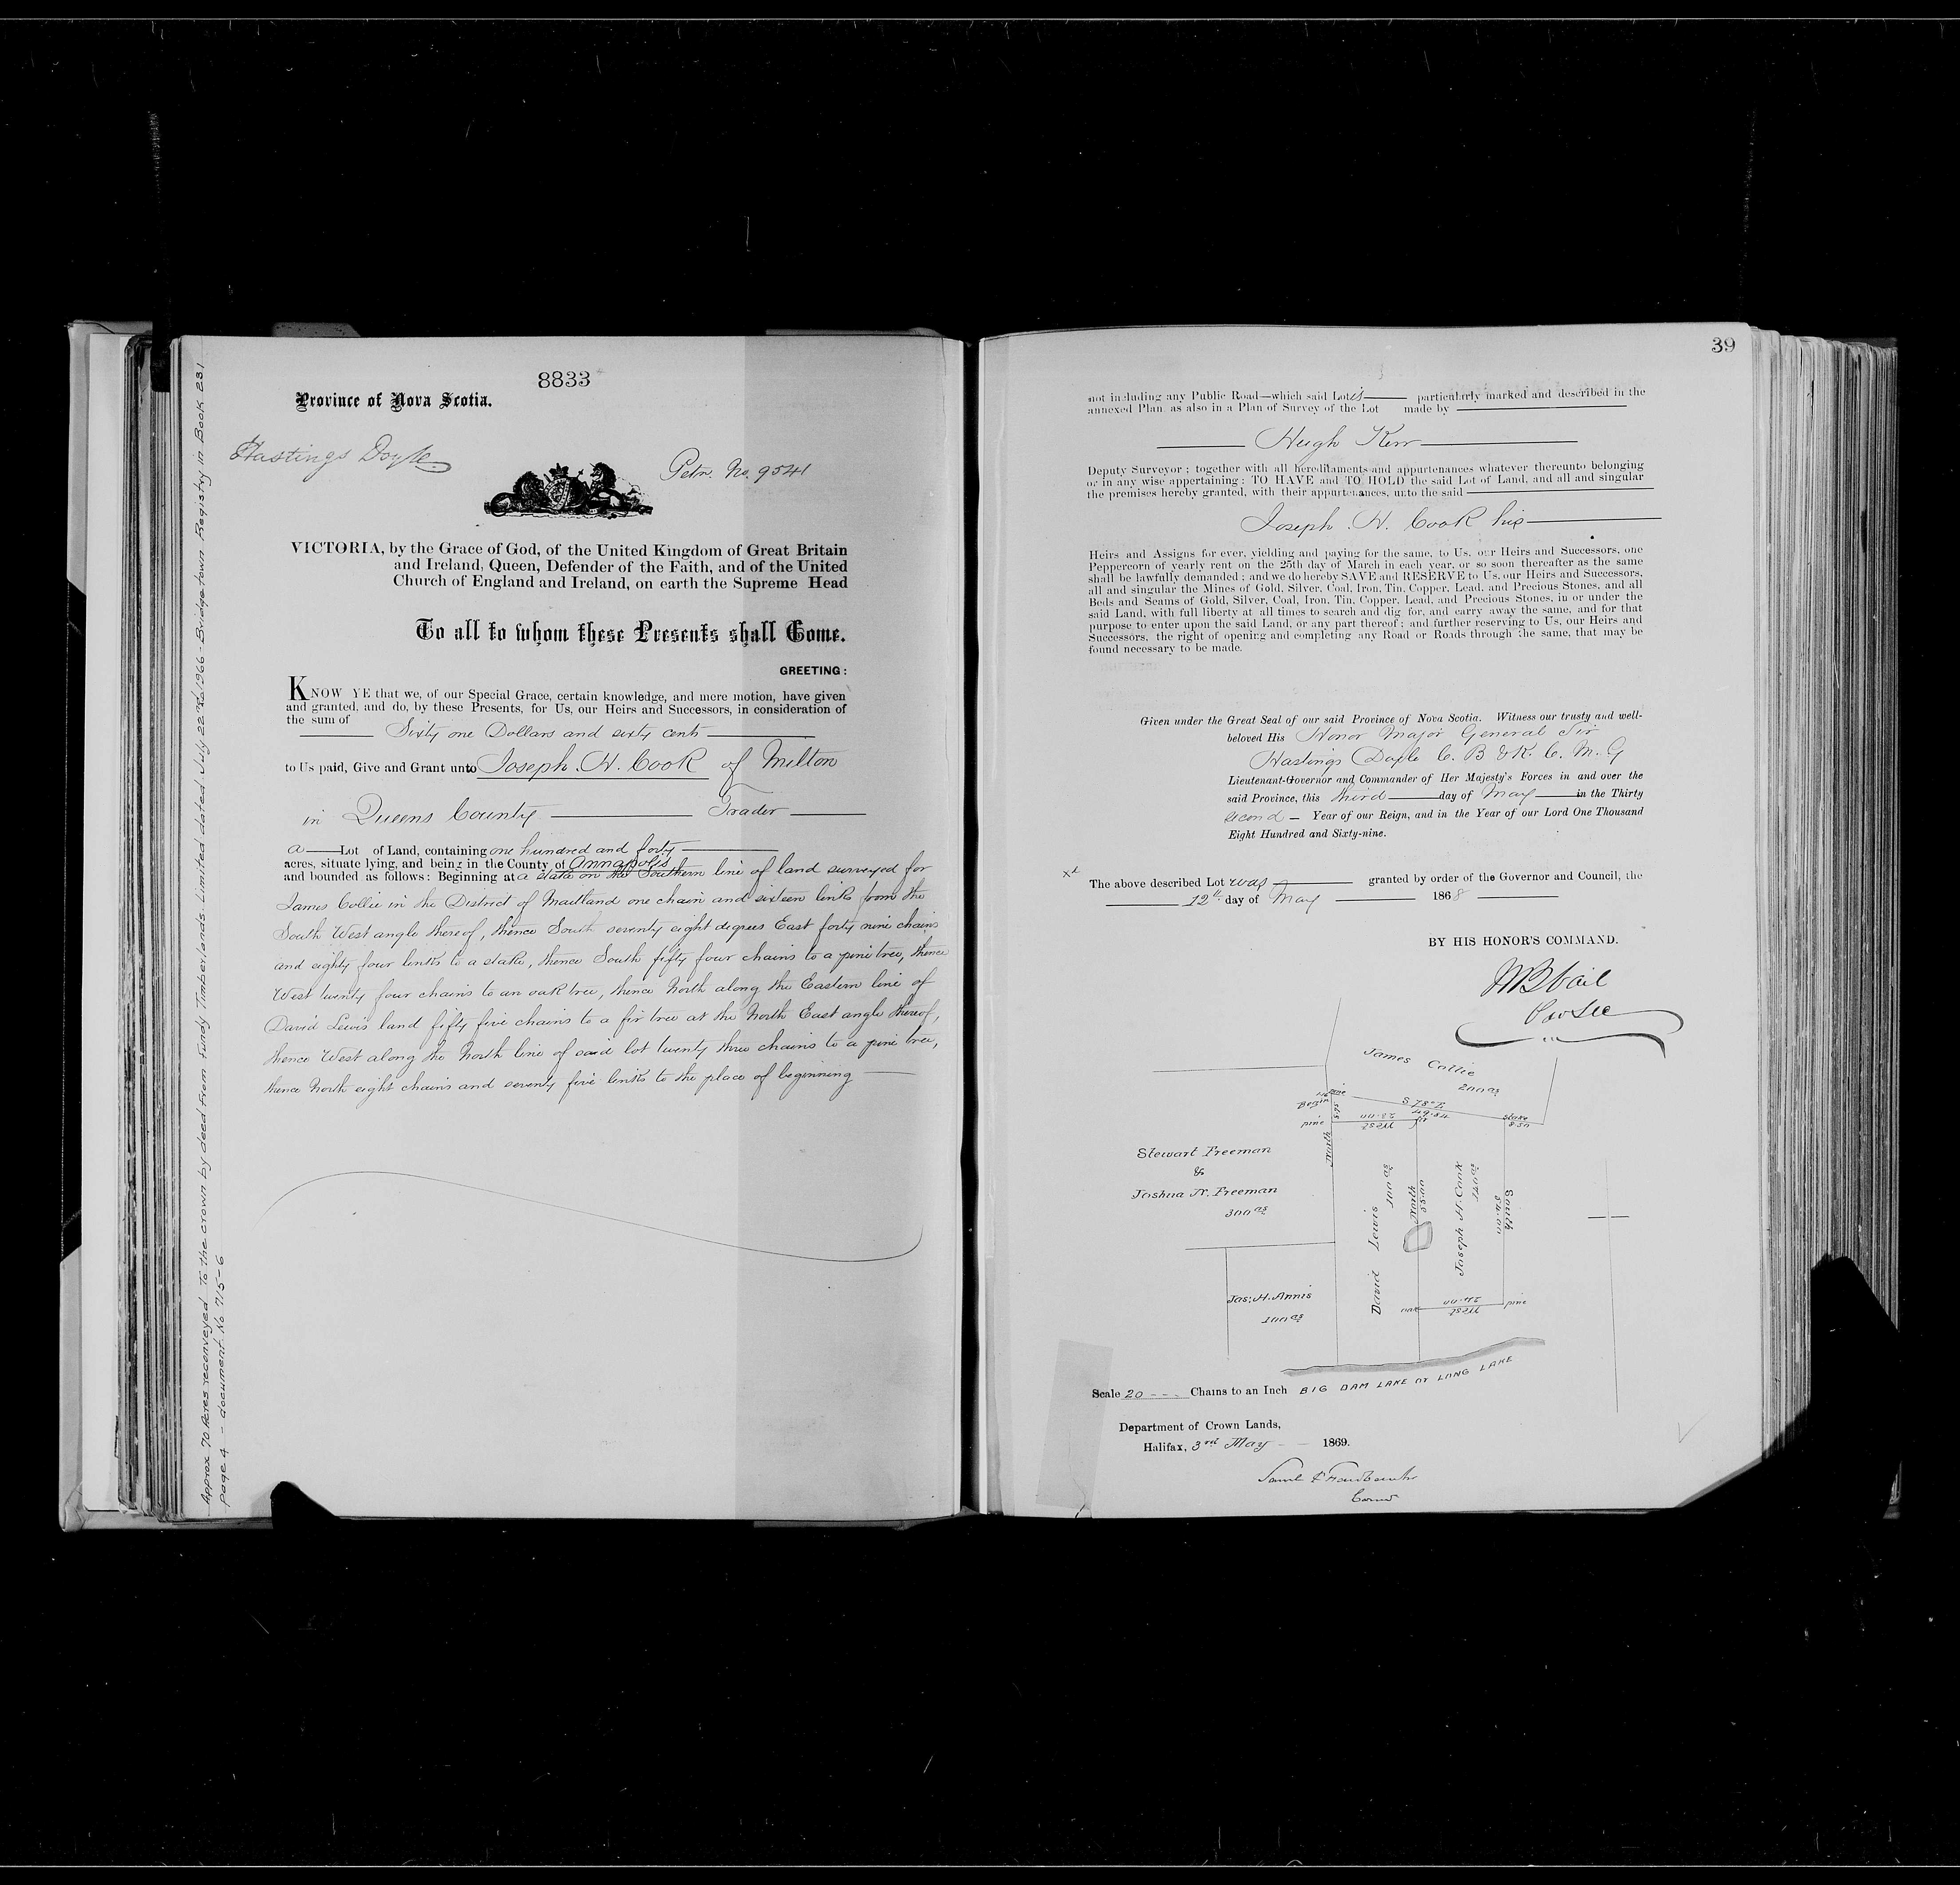 8833
Province of Nova Scotia.
Hastings Doyle
Petn. No. 9541
VICTORIA, by the Grace of God, of the United Kingdom of Great Britain
and Ireland, Queen, Defender of the Faith, and of the United
Church of England and Ireland, on earth the Supreme Head
To all to whom these Presents shall Come.
GREETING:
KNOW YE that we, of our Special Grace, certain knowledge, and mere motion, have given
and granted, and do, by these Presents, for Us, our Heirs and Successors, in consideration of
the sum of
Sixty one Dollars and sixty cents
to Us paid, Give and Grant unto Joseph. H. Cook of Milton
in Queens County Trader
a Lot of Land, containing one hundred and forty
acres, situate lying, and being in the County of Annapolis
and bounded as follows: Beginning at a stake on the Southern line of land surveyed for
James Collie in the District of Maitland one chain and sixteen links from the
South West angle thereof, thence South seventy eight degrees East forty nine chains
and eighty four links to a stake, thence South fifty four chains to a pine tree, thence
West twenty four chains to an oak tree, thence North along the Eastern line of
David Lewis land fifty five chains to a fir tree at the North East angle thereof,
thence West along the North line of said lot twenty three chains to a pine tree,
thence North eight chains and seventy five links to the place of beginning
Approx 70 Acres reconveyed to the crown by deed from Fundy Timberlands Limited dated July 22nd 1966 - Bridgetown Registry in Book 231
page 4 - document No 715-6
39
not including any Public Road—which said Lot is particularly marked and described in the
annexed Plan as also in a Plan of Survey of the Lot made by
Hugh Kerr
Deputy Surveyor; together with all hereditaments and appurtenances whatever thereunto belonging
or in any wise appertaining: TO HAVE and TO HOLD the said Lot of Land, and all and singular
the premises hereby granted, with their appurtenances, unto the said
Joseph. H. Cook his
Heirs and Assigns for ever, yielding and paying for the same, to Us, our Heirs and Successors, one
Peppercorn of yearly rent on the 25th day of March in each year, or so soon thereafter as the same
shall be lawfully demanded; and we do hereby SAVE and RESERVE to Us, our Heirs and Successors,
all and singular the Mines of Gold, Silver, Coal, Iron, Tin, Copper, Lead, and Precious Stones, and all
Beds and Seams of Gold, Silver, Coal, Iron, Tin, Copper, Lead, and Precious Stones, in or under the
said Land, with full liberty at all times to search and dig for, and carry away the same, and for that
purpose to enter upon the said Land, or any part thereof; and further reserving to Us, our Heirs and
Successors, the right of opening and completing any Road or Roads through the same, that may be
found necessary to be made.
Given under the Great Seal of our said Province of Nova Scotia. Witness our trusty and well-
beloved His Honor Major General Sir
Hastings Doyle C. B & K. C. M. G
Lieutenant-Governor and Commander of Her Majesty's Forces in and over the
said Province, this third day of May in the Thirty
second Year of our Reign, and in the Year of our Lord One Thousand
Eight Hundred and Sixty-nine.
The above described Lot was granted by order of the Governor and Council, the
12th day of May 1868
BY HIS HONOR'S COMMAND.
W B Vail
James Collie
200 as
Begin
pine
8.75
S 78° E
49.84
stake
8.50
pine
West
23.00
fir
North
Stewart Freeman
&
Joshua N. Freeman
300 as
David Lewis
100 as
North
55.00
Joseph H. Cook
140 as
South
54.00
Jas. H. Annis
100 as
oak
West
24.00
pine
BIG DAM LAKE or LONG LAKE
Scale 20 Chains to an Inch
Department of Crown Lands,
Halifax, 3rd May 1869.